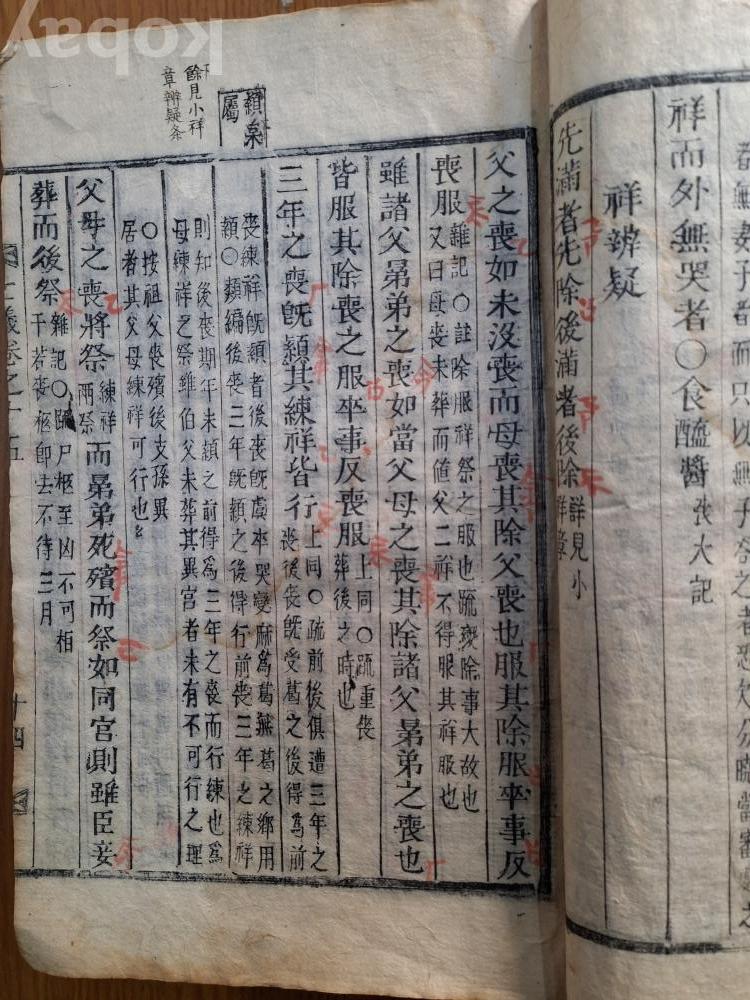 祥而外無哭者〇食醢醬喪大記
祥辨疑
先滿者先除後滿者後除詳見小
祥章
父之喪如未沒喪而母喪其除父喪也服其除服卒事反
喪服
雜記〇註除服祥祭之服也䟽變除事大故也
又曰母喪未葬而值父二祥不得服其祥服也
雖諸父昴弟之喪如當父母之喪其除諸父昴弟之喪也
皆服其除喪之服卒事反喪服
上同〇䟽重喪
葬後之時也
三年之喪旣顈其練祥皆行
上同〇疏前後俱遭三年之
喪後喪旣受葛之後得為前
喪練祥旣顈者後喪旣虞卒哭變麻為葛無葛之鄉用
顈〇類編後喪三年旣顈之後得行前喪三年之練祥
則知後喪期年未顈之前得為三年之喪而行練也為
母練祥之祭雖伯父未葬其異宮者未有不可行之理
〇按祖父喪殯後支孫異
居者其父母練祥可行也
父母之喪將祭
練祥
兩祭
而昴弟死殯而祭如同宮則雖臣妾
葬而後祭
雜記〇䟽尸柩至凶不可相
干若喪柩卽去不待三月
十四
顈枲
屬
餘見小祥
章辨疑条
kobay